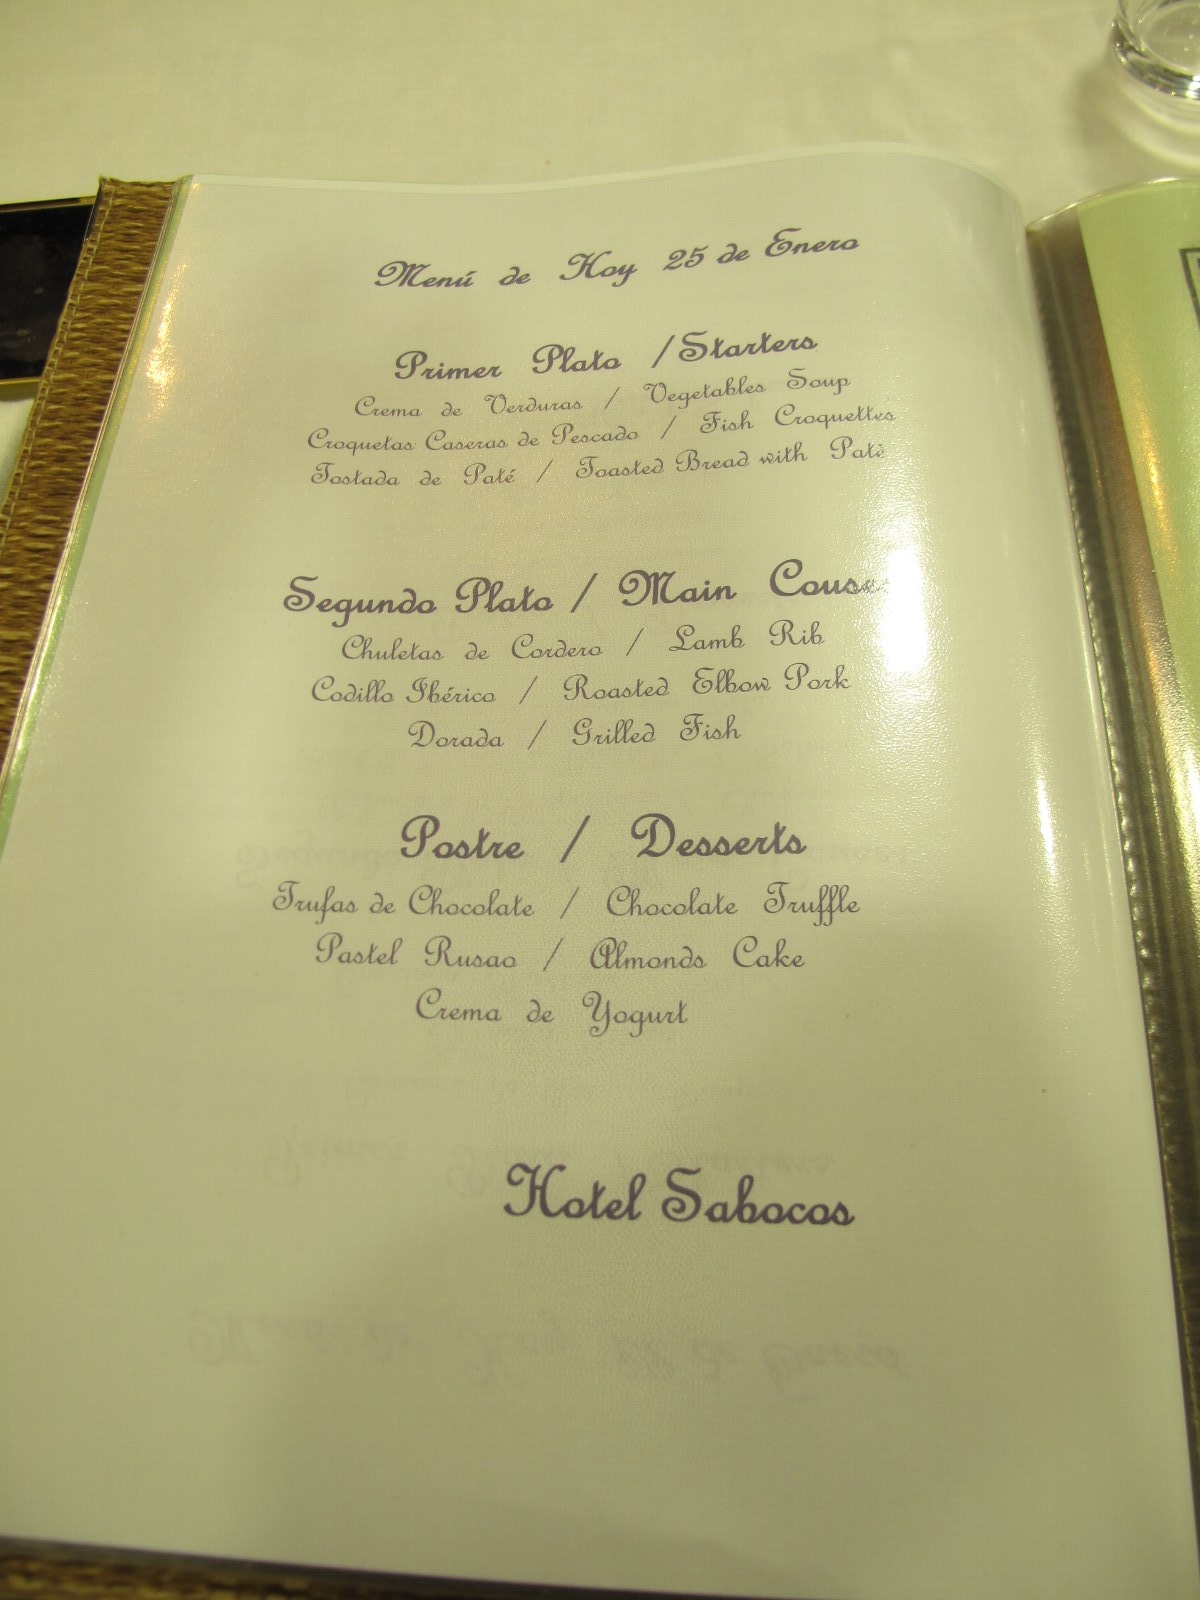 Menú de Hoy 25 de Enero
Primer Plato / Starters
Crema de Verduras / Vegetables Soup
Croquetas Caseras de Pescado / Fish Croquettes
Tostada de Paté / Toasted Bread with Patè
Segundo Plato / Main Couses
Chuletas de Cordero / Lamb Rib
Codillo Ibérico / Roasted Elbow Pork
Dorada / Grilled Fish
Postre / Desserts
Trufas de Chocolate / Chocolate Truffle
Pastel Rusao / Almonds Cake
Crema de Yogurt
Hotel Sabocos